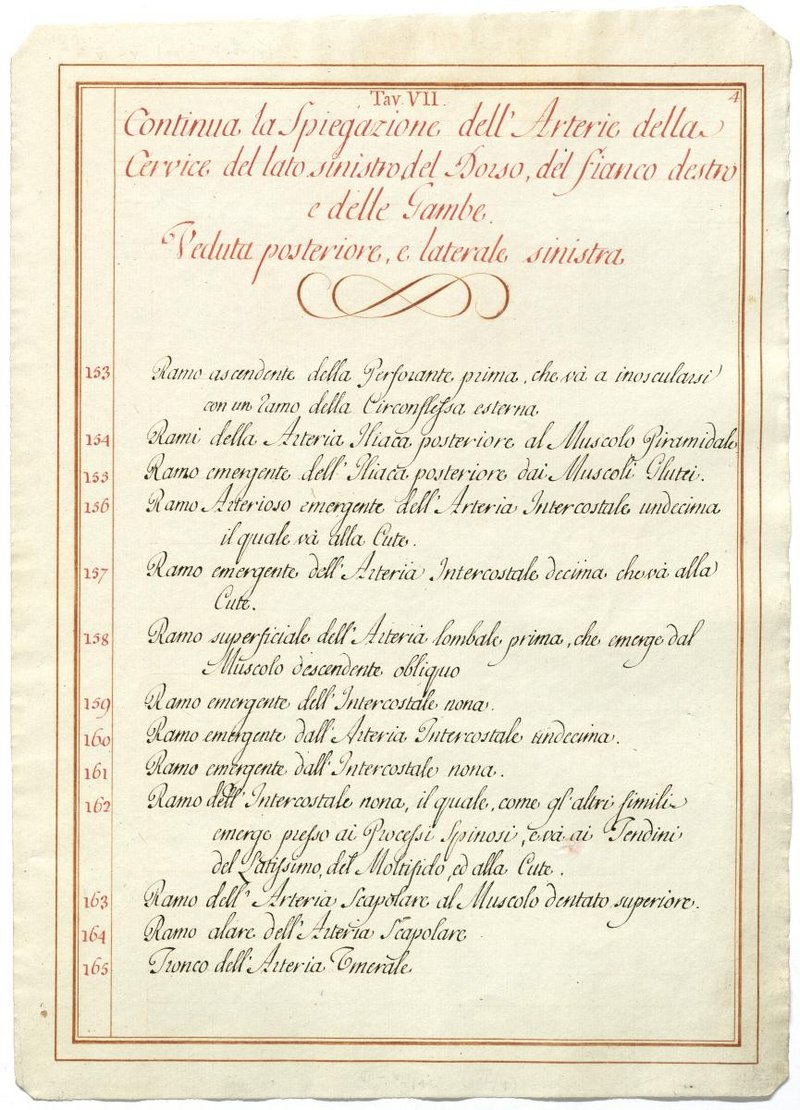 Tav. VII.
4
Continua la Spiegazione dell' Arterie della
Cervice del lato sinistro, del Dorso, del fianco destro
e delle Gambe.
Veduta posteriore, e laterale sinistra
153 Ramo ascendente della Perforante prima, che và a inoscularsi
con un ramo della Circonflessa esterna
154 Rami della Arteria Iliaca posteriore al Muscolo Piramidale
155 Ramo emergente dell' Iliaca posteriore dai Muscoli Glutei.
156 Ramo Arterioso emergente dell' Arteria Intercostale undecima
il quale và alla Cute.
157 Ramo emergente dell' Arteria Intercostale decima che và alla
Cute.
158 Ramo superficiale dell' Arteria lombale prima, che emerge dal
Muscolo descendente obliquo
159 Ramo emergente dell' Intercostale nona.
160 Ramo emergente dall' Arteria Intercostale undecima.
161 Ramo emergente dall' Intercostale nona.
162 Ramo dell' Intercostale nona, il quale, come gl' altri simili
emerge presso ai Processi Spinosi, e và ai Tendini
del Latissimo, del Moltifido, ed alla Cute.
163 Ramo dell' Arteria Scapolare al Muscolo dentato superiore.
164 Ramo alare dell' Arteria Scapolare
165 Tronco dell' Arteria Omerale